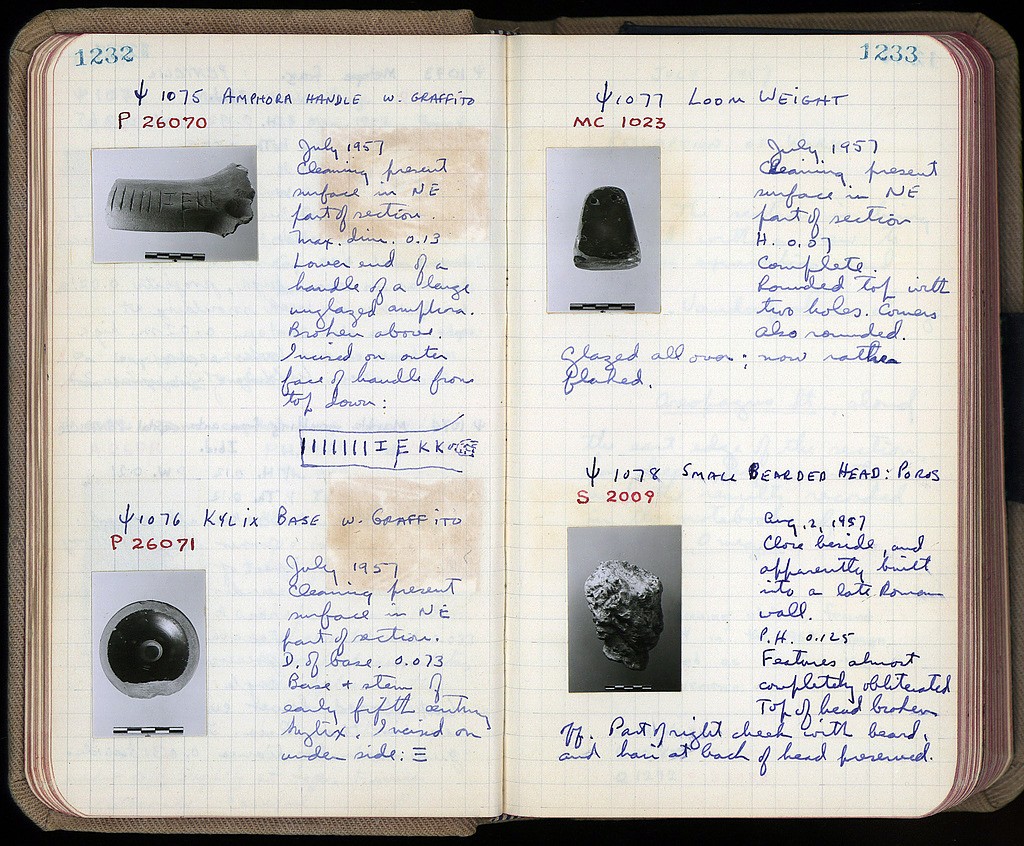 1232
Ψ 1075 AMPHORA HANDLE W. GRAFFITO
P 26070
July 1957
Cleaning present
surface in NE
part of section.
Max. dim. 0.13
Lower end of a
handle of a large
unglazed amphora.
Broken above.
Incised on outer
face of handle from
top down:
IIIIIIII I E K K
Ψ 1076 KYLIX BASE W. GRAFFITO
P 26071
July 1957
Cleaning present
surface in NE
part of section.
D. of base. 0.073
Base + stem of
early fifth century
kylix. Incised on
under side: Ξ
1233
Ψ 1077 LOOM WEIGHT
MC 1023
July 1957
Cleaning present
surface in NE
part of section
H. 0.07
Complete.
Rounded top with
two holes. Corners
also rounded.
Glazed all over; now rather
flaked.
Ψ 1078 SMALL BEARDED HEAD: POROS
S 2009
Aug. 2, 1957
Close beside, and
apparently built
into a late Roman
wall.
P.H. 0.125
Features almost
completely obliterated
Top of head broken
off. Part of right cheek with beard,
and hair at back of head preserved.